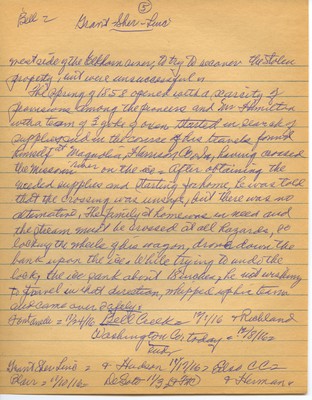 5
Bell 2
Grant Sher-Luic
west side of the Elkhorn river, to try to recover the stolen
property, but were unsuccessful.
The spring of 1858 opened with a scarcity of
provisions among the pioneers and Mr Hamilton
with a team of 3 yoke of oxen started in search of
supplies and in the course of his travels, found
himself at Magnolia, Harrison Co. Ia, having crossed
the Missouri river on the ice. After obtaining the
needed supplies and starting for home, he was told
that the crossing was unsafe, but there was no
alternative. The family at home was in need and
the stream must be crossed at all hazards, so
locking the wheels of his wagon, drove down the
bank upon the ice. While trying to undo the
lock, the ice sank about 18 inches, he not wishing
to travel in that direction, whipped up his team
and came over safely.
Fontanelle = 12/24/16 Bell Creek = 12/1/16 + Richland
Washington Co. today = 12/8/16 =
Grant, Sher + Hudson 12/17/16 = Also CC =
12/10/16 = DeSoto + Herman =